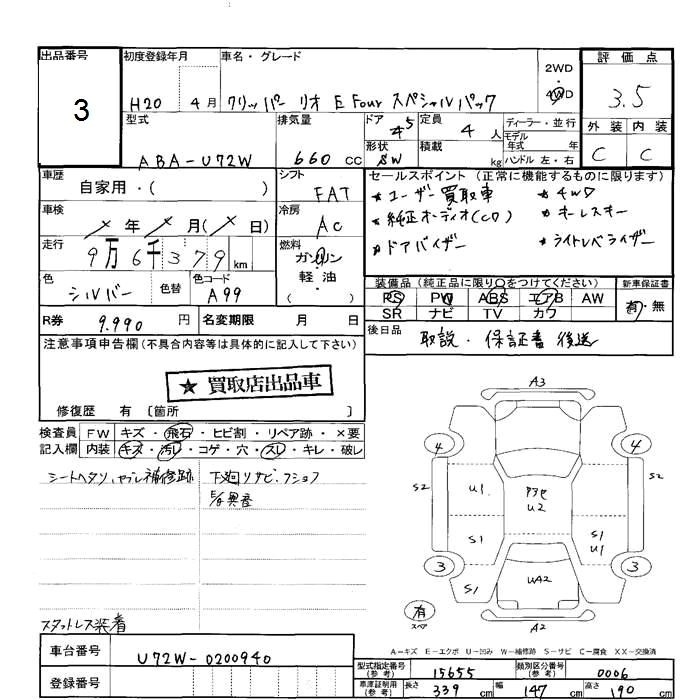 出品番号
3
初度登録年月
H20 4月
車名・グレード
クリッパー リオ E Four スペシャルパック
2WD
・
4WD
評価点
3.5
外装 内装
C C
型式
ABA-U72W
排気量
660 cc
ドア
45
形状
SW
定員
4 人
積載
kg
ディーラー・並行
モデル
年式 年
ハンドル 左・右
車歴
自家用・( )
シフト
FAT
車検
年 月( 日)
冷房
AC
走行
9万6千379km
燃料
ガソリン
軽・油
( )
色
シルバー
色替
色コード
A99
R券 9.990 円
名変期限 月 日
セールスポイント(正常に機能するものに限ります)
*ユーザー買取車 *4WD
*純正オーディオ(CD) *キーレスキー
*ドアバイザー *ライトレベライザー
装備品(純正品に限り○をつけてください)
PS PW ABS エアB AW
SR ナビ TV カワ
新車保証書
有・無
後日品
取説・保証書 後送
注意事項申告欄(不具合内容等は具体的に記入して下さい)
★買取店出品車
修復歴 有 [箇所 ]
検査員 FW キズ・飛石・ヒビ割・リペア跡・×要
記入欄 内装 キズ・汚レ・コゲ・穴・スレ・キレ・破レ
シートヘタリ、ヤブレ補修跡
下廻リサビ・フショク
E/G異音
スタットレス装着
A3
4 4
S2 S2
U1
アタセ
U2
S1
S1
U1
3 3
S1
UA2
A2
有
スペア
A-キズ E-エクボ U-凹み W-補修跡 S-サビ C-腐食 XX-交換済
車台番号
U72W-0200940
登録番号
型式指定番号
(参考)
15655
類別区分番号
(参考)
0006
車庫証明用
(参考)
長さ 339 cm 幅 147 cm 高さ 190 cm